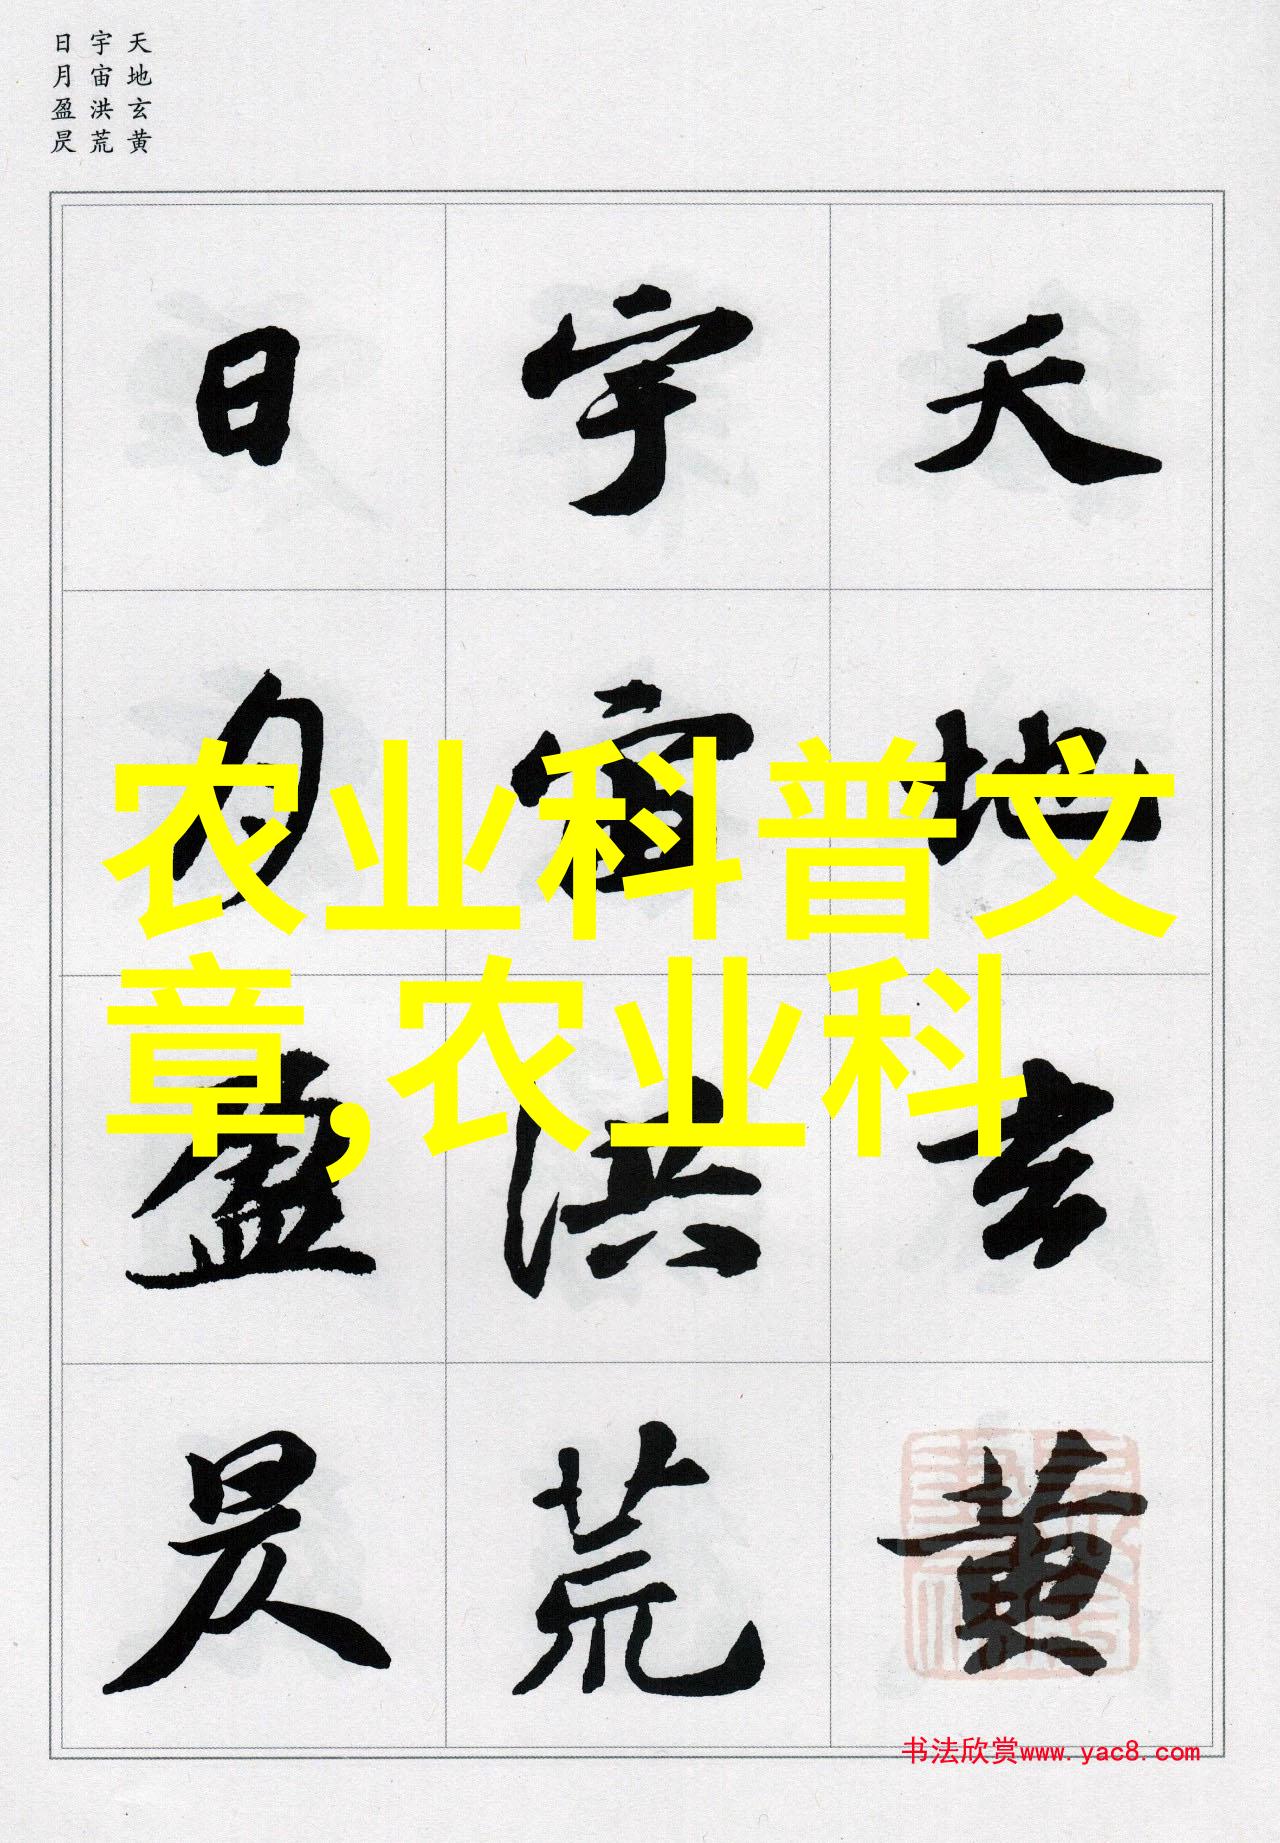 天地玄黄
宇宙洪荒
日月盈昃
天地玄黄
宇宙洪荒
日月盈昃
农业科普文
章,农业科
书法欣赏www.yac8.com